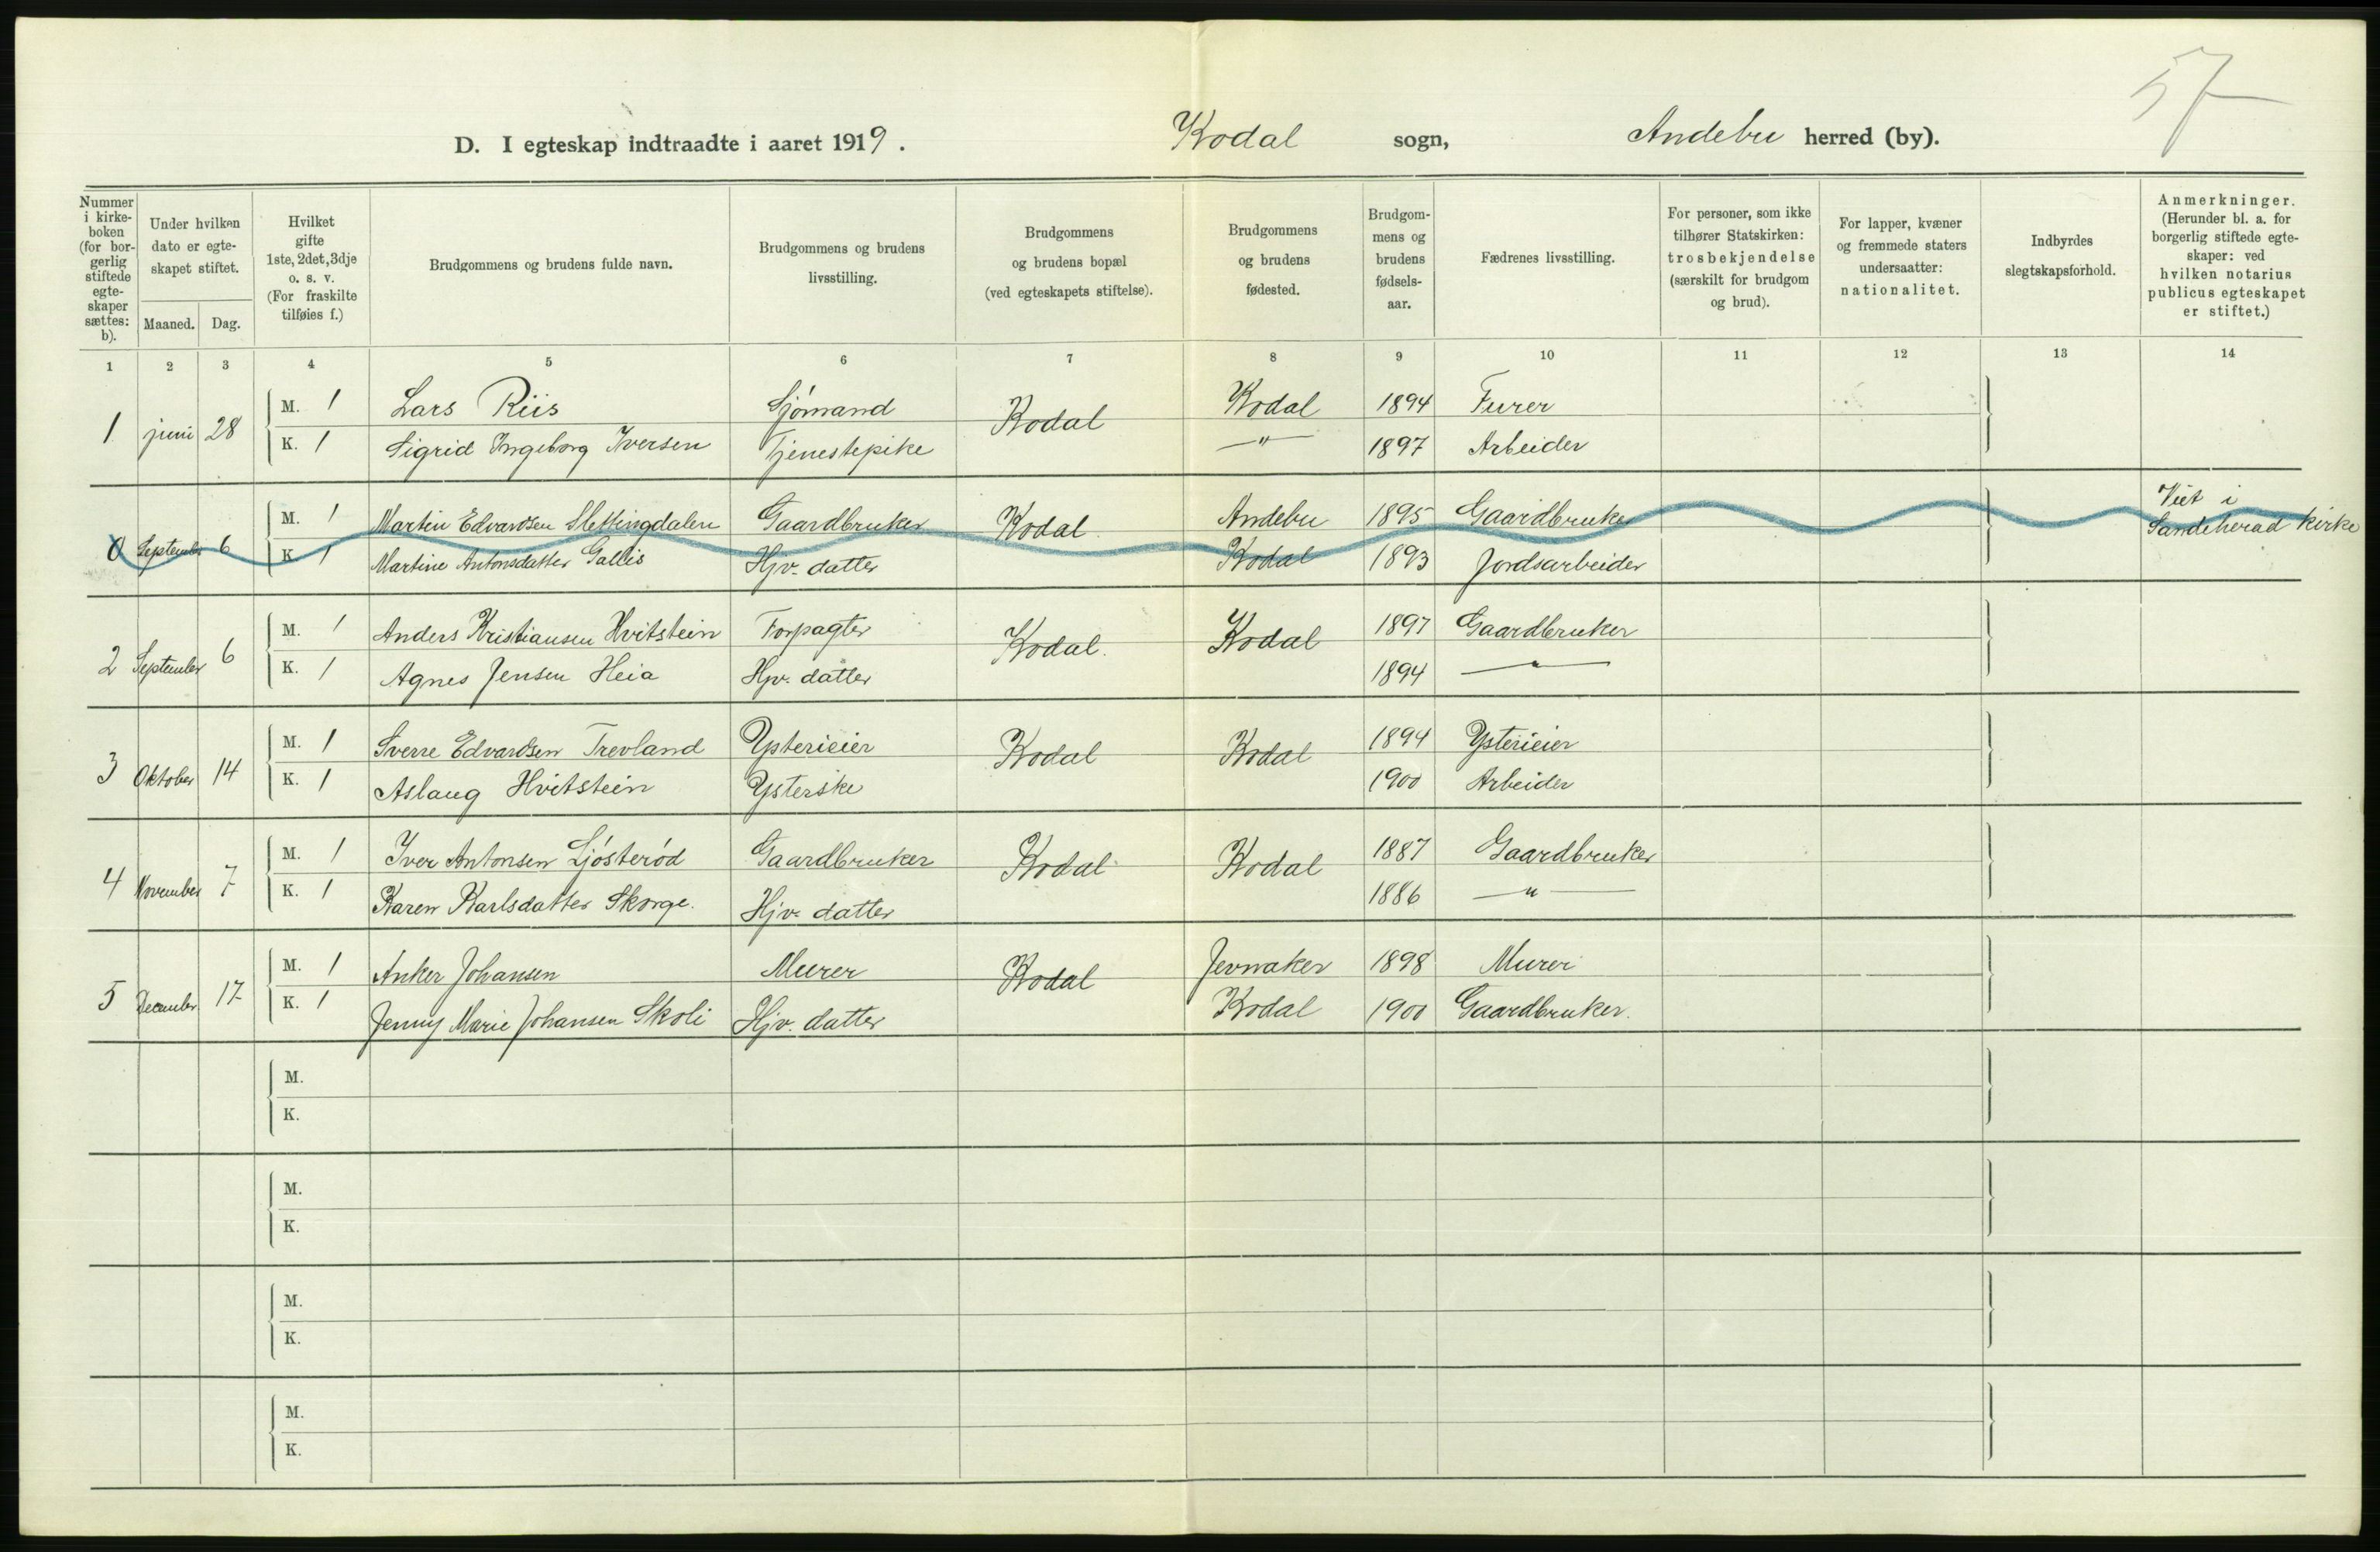 57
D. I egteskap indtraadte i aaret 1919. Kodal sogn, Andebu herred (by).
Nummer i kirke-boken (for bor-gerlig stiftede egte-skaper sættes: b).
Under hvilken dato er egte-skapet stiftet.
Maaned. Dag.
Hvilket gifte 1ste, 2det, 3dje o. s. v. (For fraskilte tilføies f.)
Brudgommens og brudens fulde navn.
Brudgommens og brudens livsstilling.
Brudgommens og brudens bopæl (ved egteskapets stiftelse).
Brudgommens og brudens fødested.
Brudgom-mens og brudens fødsels-aar.
Fædrenes livsstilling.
For personer, som ikke tilhører Statskirken: trosbekjendelse (særskilt for brudgom og brud).
For lapper, kvæner og fremmede staters undersaatter: nationalitet.
Indbyrdes slegtskapsforhold.
Anmerkninger. (Herunder bl. a. for borgerlig stiftede egte-skaper: ved hvilken notarius publicus egteskapet er stiftet.)
1 2 3 4 5 6 7 8 9 10 11 12 13 14
1 juni 28 M. 1 Lars Riis Sjömand Kodal Kodal 1894 Furer
K. 1 Sigrid Ingeborg Iversen Tjenestepike —"— 1897 Arbeider
0 September 6 M. 1 Martin Edvardsen Slettingdalen Gaardbruker Kodal. Andebu 1895 Gaardbruker Viet i Sandeherad kirke
K. 1 Martine Antonsdatter Gallis Hjv. datter Kodal 1893 Jordsarbeider
2 September 6 M. 1 Anders Kristiansen Hvitstein Forpagter Kodal. Kodal 1897 Gaardbruker
K. 1 Agnes Jensen Heia Hjv. datter 1894 —"—
3 Oktober 14 M. 1 Sverre Edvardsen Trevland Ysterieier Kodal Kodal 1894 Ysterieier
K. 1 Aslaug Hvitstein Ysterske 1900 Arbeider
4 November 7 M. 1 Iver Antonsen Ljösterød Gaardbruker Kodal Kodal 1887 Gaardbruker
K. 1 Karen Karlsdatter Skorge. Hjv. datter 1886 —"—
5 December 17 M. 1 Anker Johansen Murer Kodal Jevnaker 1898 Murer
K. 1 Jenny Marie Johansen Skoli Hjv. datter Kodal 1900 Gaardbruker.
M.
K.
M.
K.
M.
K.
M.
K.